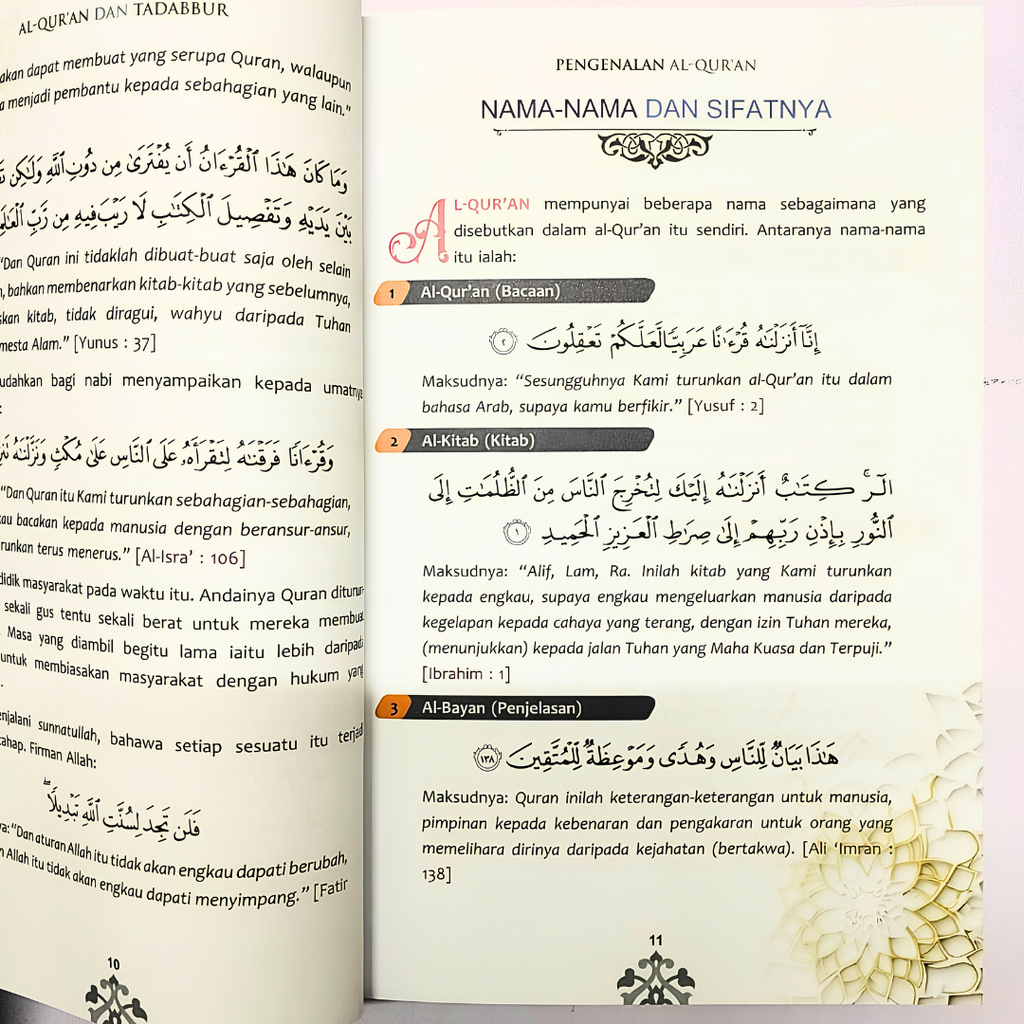 AL-QUR'AN DAN TADABBUR
akan dapat membuat yang serupa Quran, walaupun
menjadi pembantu kepada sebahagian yang lain."
وَمَا كَانَ هَٰذَا الْقُرْءَانُ أَن يُفْتَرَىٰ مِن دُونِ اللَّهِ وَلَٰكِن
بَيْنَ يَدَيْهِ وَتَفْصِيلَ الْكِتَٰبِ لَا رَيْبَ فِيهِ مِن رَّبِّ
"Dan Quran ini tidaklah dibuat-buat saja oleh selain
bahkan membenarkan kitab-kitab yang sebelumnya,
kitab, tidak diragui, wahyu daripada Tuhan
Alam." [Yunus : 37]
bagi nabi menyampaikan kepada umatnya
:
وَقُرْءَانًا فَرَقْنَٰهُ لِتَقْرَأَهُۥ عَلَى النَّاسِ عَلَىٰ مُكْثٍ وَنَزَّلْنَٰهُ
"Dan Quran itu Kami turunkan sebahagian-sebahagian,
bacakan kepada manusia dengan beransur-ansur,
terus menerus." [Al-Isra' : 106]
masyarakat pada waktu itu. Andainya Quran
sekali gus tentu sekali berat untuk mereka membuat
Masa yang diambil begitu lama iaitu lebih daripada
untuk membiasakan masyarakat dengan hukum yang
sunnatullah, bahawa setiap sesuatu itu terjadi
Firman Allah:
فَلَن تَجِدَ لِسُنَّتِ اللَّهِ تَبْدِيلًا ۖ
"Dan aturan Allah itu tidak akan engkau dapati berubah,
Allah itu tidak akan engkau dapati menyimpang." [Fatir
10
PENGENALAN AL-QUR'AN
NAMA-NAMA DAN SIFATNYA
AL-QUR'AN mempunyai beberapa nama sebagaimana yang
disebutkan dalam al-Qur'an itu sendiri. Antaranya nama-nama
itu ialah:
1 Al-Qur'an (Bacaan)
إِنَّآ أَنزَلْنَٰهُ قُرْءَٰنًا عَرَبِيًّا لَّعَلَّكُمْ تَعْقِلُونَ ٢
Maksudnya: "Sesungguhnya Kami turunkan al-Qur'an itu dalam
bahasa Arab, supaya kamu berfikir." [Yusuf : 2]
2 Al-Kitab (Kitab)
الٓر ۚ كِتَٰبٌ أَنزَلْنَٰهُ إِلَيْكَ لِتُخْرِجَ النَّاسَ مِنَ الظُّلُمَٰتِ إِلَى
النُّورِ بِإِذْنِ رَبِّهِمْ إِلَىٰ صِرَٰطِ الْعَزِيزِ الْحَمِيدِ ١
Maksudnya: "Alif, Lam, Ra. Inilah kitab yang Kami turunkan
kepada engkau, supaya engkau mengeluarkan manusia daripada
kegelapan kepada cahaya yang terang, dengan izin Tuhan mereka,
(menunjukkan) kepada jalan Tuhan yang Maha Kuasa dan Terpuji."
[Ibrahim : 1]
3 Al-Bayan (Penjelasan)
هَٰذَا بَيَانٌ لِّلنَّاسِ وَهُدًى وَمَوْعِظَةٌ لِّلْمُتَّقِينَ ١٣٨
Maksudnya: Quran inilah keterangan-keterangan untuk manusia,
pimpinan kepada kebenaran dan pengakaran untuk orang yang
memelihara dirinya daripada kejahatan (bertakwa). [Ali 'Imran :
138]
11